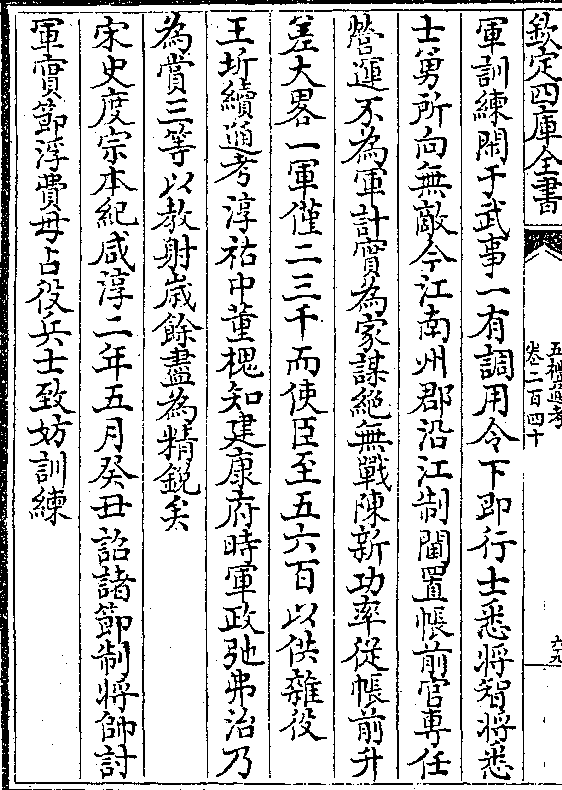 欽定四庫全書
五禮通考
卷二百四十
六九
軍訓練閑于武事一有調用令下即行士悉將智將悉
士勇所向無敵今江南州郡沿江制閫置帳前官專任
營運不為軍計實為家謀絕無戰陳新功率從帳前升
差大畧一軍僅二三千而使臣至五六百以供雜役
王圻續通考淳祐中董槐知建康府時軍政弛弗治乃
為賞三等以教射嵗餘盡為精鋭矣
宋史度宗本紀咸淳二年五月癸丑詔諸節制將帥討
軍實節浮費毋占役兵士致妨訓練